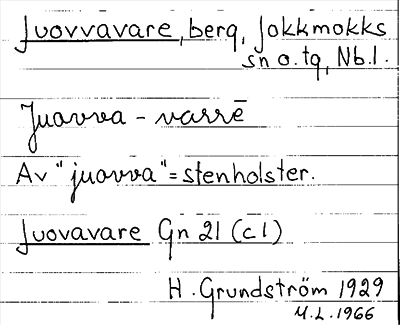 Juovvavare, berg, Jokkmokks
sn o. tg, Nb.l.
Juovva - varrē
Av "juovva" = stenholster.
Juovavare Gn 21 (c1)
H. Grundström 1929
M.L. 1966